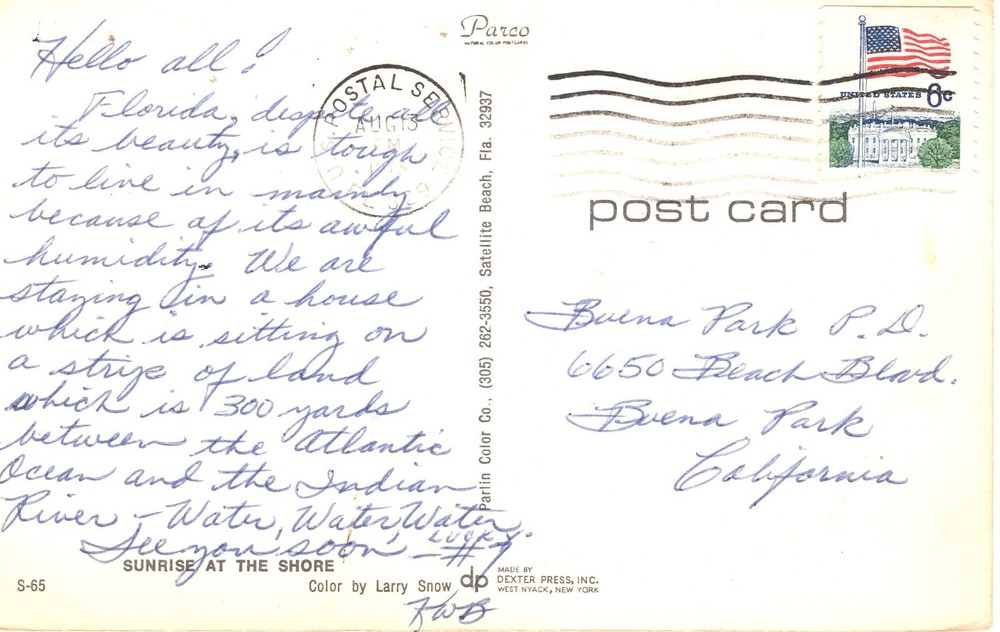 Parco
NATURAL COLOR POSTCARDS
Hello all!
Florida, despite all
its beauty, is tough
to live in mainly
because of its awful
humidity. We are
staying in a house
which is sitting on
a strip of land
which is 300 yards
between the Atlantic
Ocean and the Indian
River - Water, Water, Water
See you soon, LUCKY
#7
KWB
POSTAL SERVICE
AUG 13
UNITED STATES 6c
post card
Buena Park P.D.
6650 Beach Blvd.
Buena Park
California
Parlin Color Co., (305) 262-3550, Satellite Beach, Fla. 32937
SUNRISE AT THE SHORE
S-65
Color by Larry Snow
dp
MADE BY
DEXTER PRESS, INC.
WEST NYACK, NEW YORK